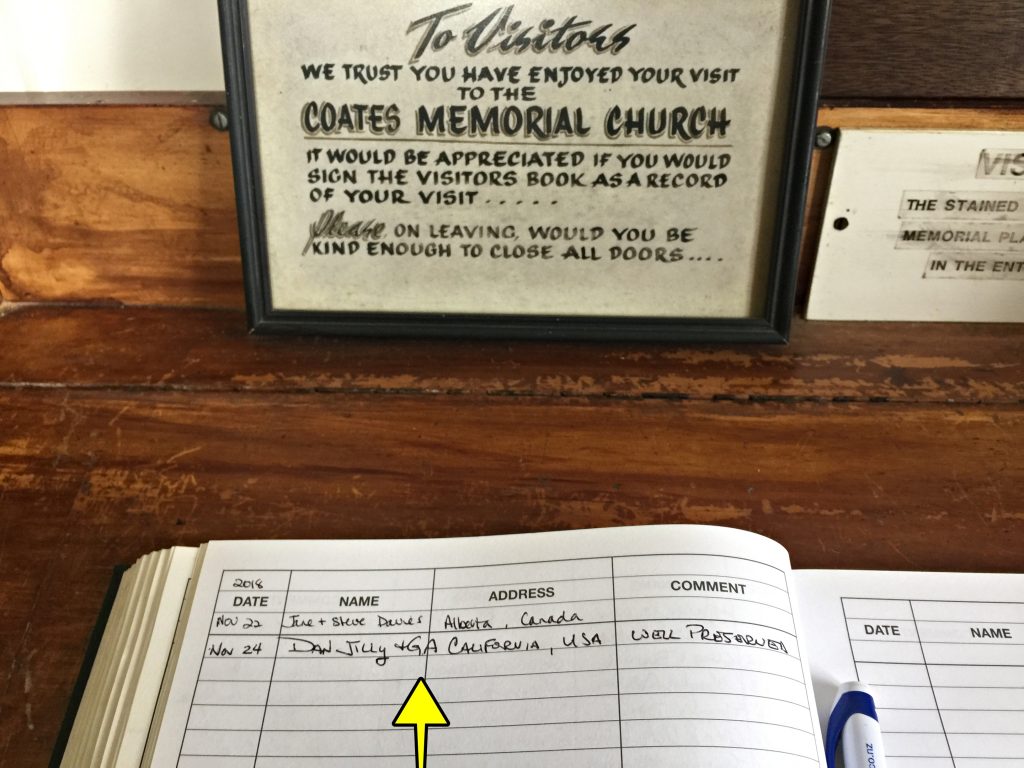 To Visitors
WE TRUST YOU HAVE ENJOYED YOUR VISIT
TO THE
COATES MEMORIAL CHURCH
IT WOULD BE APPRECIATED IF YOU WOULD
SIGN THE VISITORS BOOK AS A RECORD
OF YOUR VISIT . . . . .
Please ON LEAVING, WOULD YOU BE
KIND ENOUGH TO CLOSE ALL DOORS....
THE STAINED
MEMORIAL
IN THE
2018
DATE NAME ADDRESS COMMENT
Nov 22 June + Steve Davies Alberta, Canada
Nov 24 DAN JILLY + GA CALIFORNIA, USA WELL PRESERVED
DATE NAME